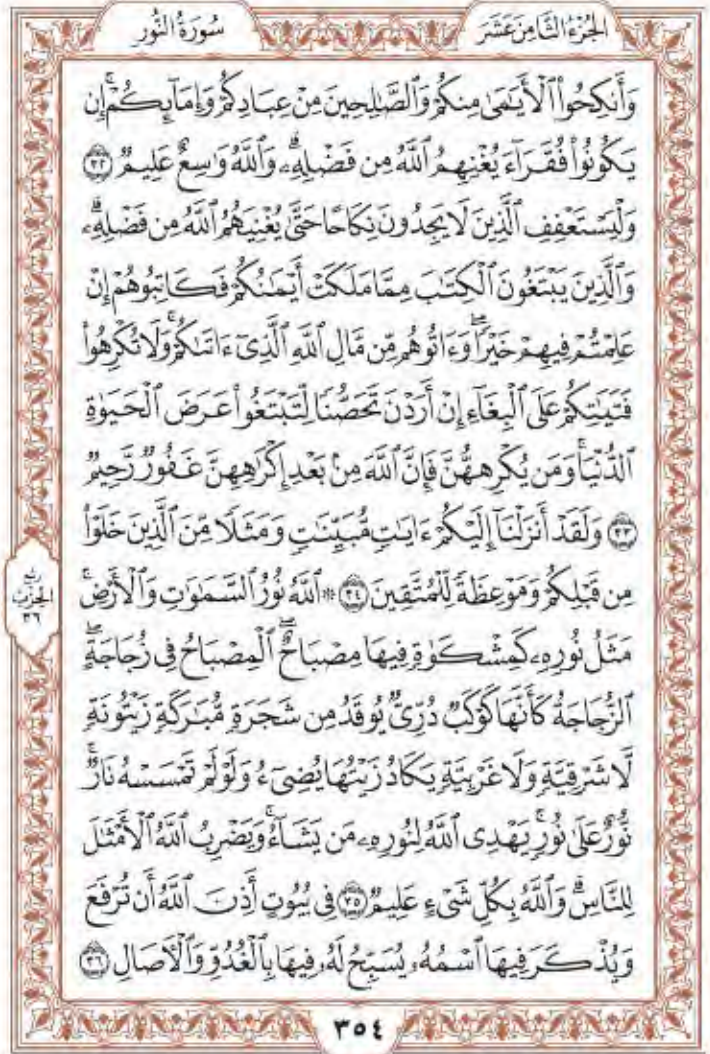 الجُزْءُ الثَّامِنَ عَشَرَ
سُورَةُ النُّورِ
وَأَنكِحُوا۟ ٱلْأَيَـٰمَىٰ مِنكُمْ وَٱلصَّـٰلِحِينَ مِنْ عِبَادِكُمْ وَإِمَآئِكُمْ ۚ إِن
يَكُونُوا۟ فُقَرَآءَ يُغْنِهِمُ ٱللَّهُ مِن فَضْلِهِۦ ۗ وَٱللَّهُ وَٰسِعٌ عَلِيمٌ ۝٣٢
وَلْيَسْتَعْفِفِ ٱلَّذِينَ لَا يَجِدُونَ نِكَاحًا حَتَّىٰ يُغْنِيَهُمُ ٱللَّهُ مِن فَضْلِهِۦ ۗ
وَٱلَّذِينَ يَبْتَغُونَ ٱلْكِتَـٰبَ مِمَّا مَلَكَتْ أَيْمَـٰنُكُمْ فَكَاتِبُوهُمْ إِنْ
عَلِمْتُمْ فِيهِمْ خَيْرًا ۖ وَءَاتُوهُم مِّن مَّالِ ٱللَّهِ ٱلَّذِىٓ ءَاتَىٰكُمْ ۚ وَلَا تُكْرِهُوا۟
فَتَيَـٰتِكُمْ عَلَى ٱلْبِغَآءِ إِنْ أَرَدْنَ تَحَصُّنًا لِّتَبْتَغُوا۟ عَرَضَ ٱلْحَيَوٰةِ
ٱلدُّنْيَا ۚ وَمَن يُكْرِههُّنَّ فَإِنَّ ٱللَّهَ مِنۢ بَعْدِ إِكْرَٰهِهِنَّ غَفُورٌ رَّحِيمٌ
۝٣٣ وَلَقَدْ أَنزَلْنَآ إِلَيْكُمْ ءَايَـٰتٍ مُّبَيِّنَـٰتٍ وَمَثَلًا مِّنَ ٱلَّذِينَ خَلَوْا۟
مِن قَبْلِكُمْ وَمَوْعِظَةً لِّلْمُتَّقِينَ ۝٣٤ ۞ ٱللَّهُ نُورُ ٱلسَّمَـٰوَٰتِ وَٱلْأَرْضِ ۚ
مَثَلُ نُورِهِۦ كَمِشْكَوٰةٍ فِيهَا مِصْبَاحٌ ۖ ٱلْمِصْبَاحُ فِى زُجَاجَةٍ ۖ
ٱلزُّجَاجَةُ كَأَنَّهَا كَوْكَبٌ دُرِّىٌّ يُوقَدُ مِن شَجَرَةٍ مُّبَـٰرَكَةٍ زَيْتُونَةٍ
لَّا شَرْقِيَّةٍ وَلَا غَرْبِيَّةٍ يَكَادُ زَيْتُهَا يُضِىٓءُ وَلَوْ لَمْ تَمْسَسْهُ نَارٌ ۚ
نُّورٌ عَلَىٰ نُورٍ ۗ يَهْدِى ٱللَّهُ لِنُورِهِۦ مَن يَشَآءُ ۚ وَيَضْرِبُ ٱللَّهُ ٱلْأَمْثَـٰلَ
لِلنَّاسِ ۗ وَٱللَّهُ بِكُلِّ شَىْءٍ عَلِيمٌ ۝٣٥ فِى بُيُوتٍ أَذِنَ ٱللَّهُ أَن تُرْفَعَ
وَيُذْكَرَ فِيهَا ٱسْمُهُۥ يُسَبِّحُ لَهُۥ فِيهَا بِٱلْغُدُوِّ وَٱلْـَٔاصَالِ ۝٣٦
ربع
الحزب
٣٦
٣٥٤